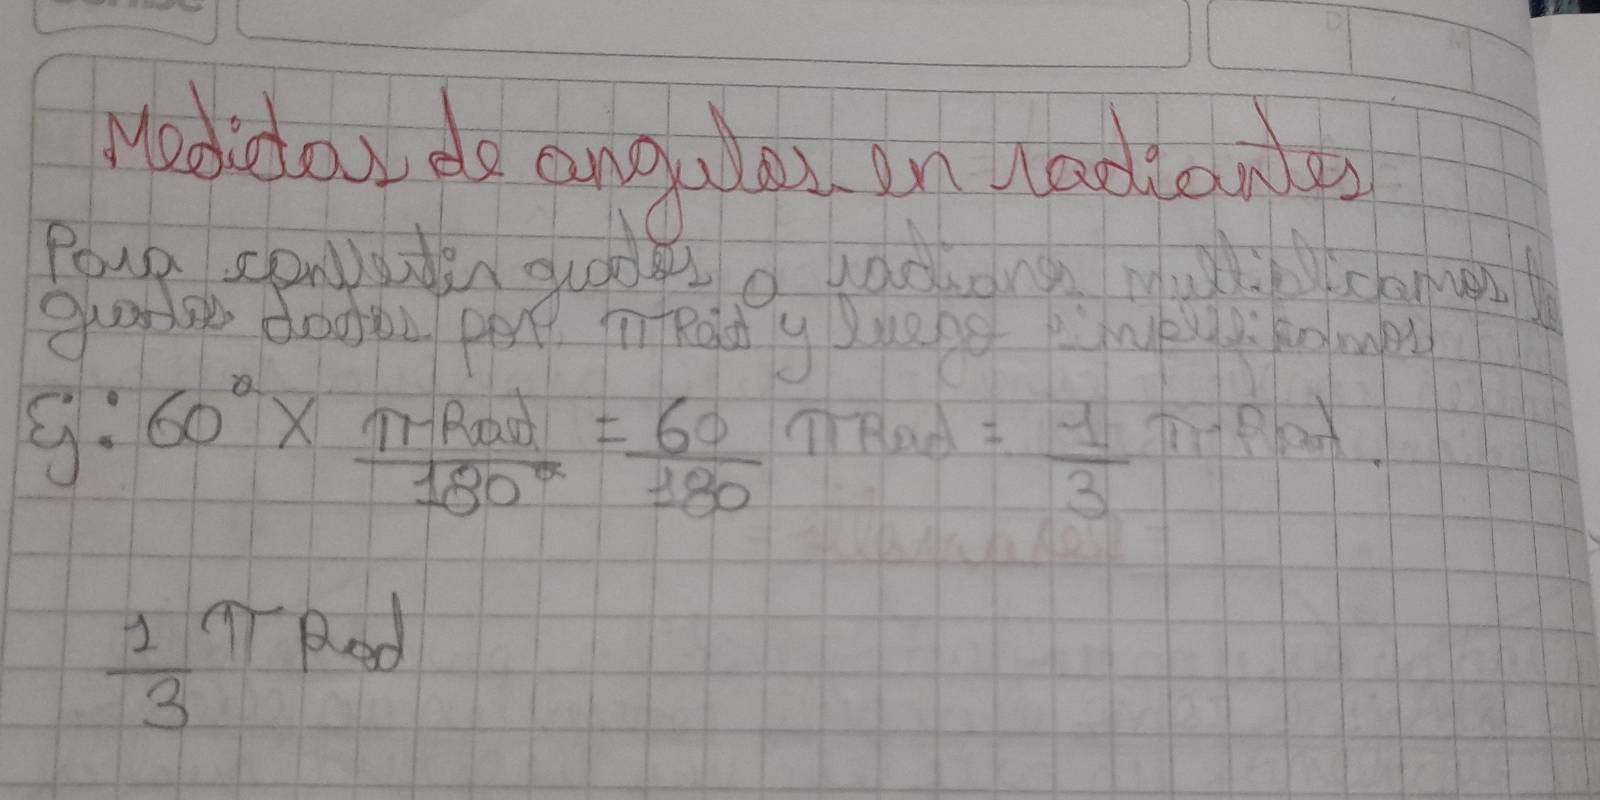 Medidas de angulos en radiantes
Para convertir grados a radianes multiplicamos los
grados dados por π Rad y luego simplificamos
Ej: 60° X π Rad / 180° = 60 / 180 π Rad = 1 / 3 π Rad.
1 / 3 π Rad